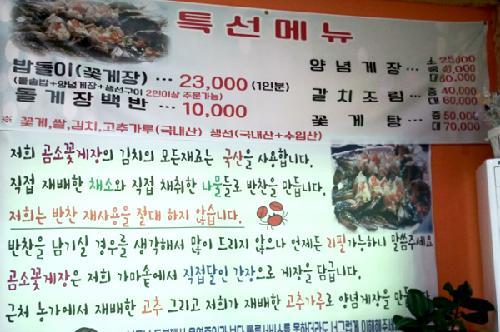 특선메뉴
밥돌이(꽃게장) ··· 23,000 (1인분)
(돌솥밥+양념게장+생선구이 2인이상 주문가능)
돌게장백반 ··· 10,000
양념게장 ···
대 60,000
갈치조림 ··· 중 40,000
대 60,000
꽃게탕 ··· 중 50,000
대 70,000
꽃게,쌀,김치,고추가루(국내산) 생선(국내산+수입산)
저희 곰소꽃게장의 김치의 모든재료는 국산을 사용합니다.
직접 재배한 채소와 직접 채취한 나물들로 반찬을 만듭니다.
저희는 반찬 재사용을 절대 하지 않습니다.
반찬을 남기실 경우를 생각해서 많이 드리지 않으나 언제든 리필가능하니 말씀주세요
곰소꽃게장은 저희 가마솥에서 직접달인 간장으로 게장을 담급니다.
근처 농가에서 재배한 고추 그리고 저희가 재배한 고추가루로 양념게장을 만